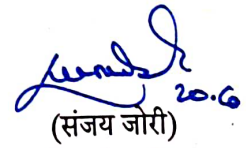 20.6
(संजय जोरी)